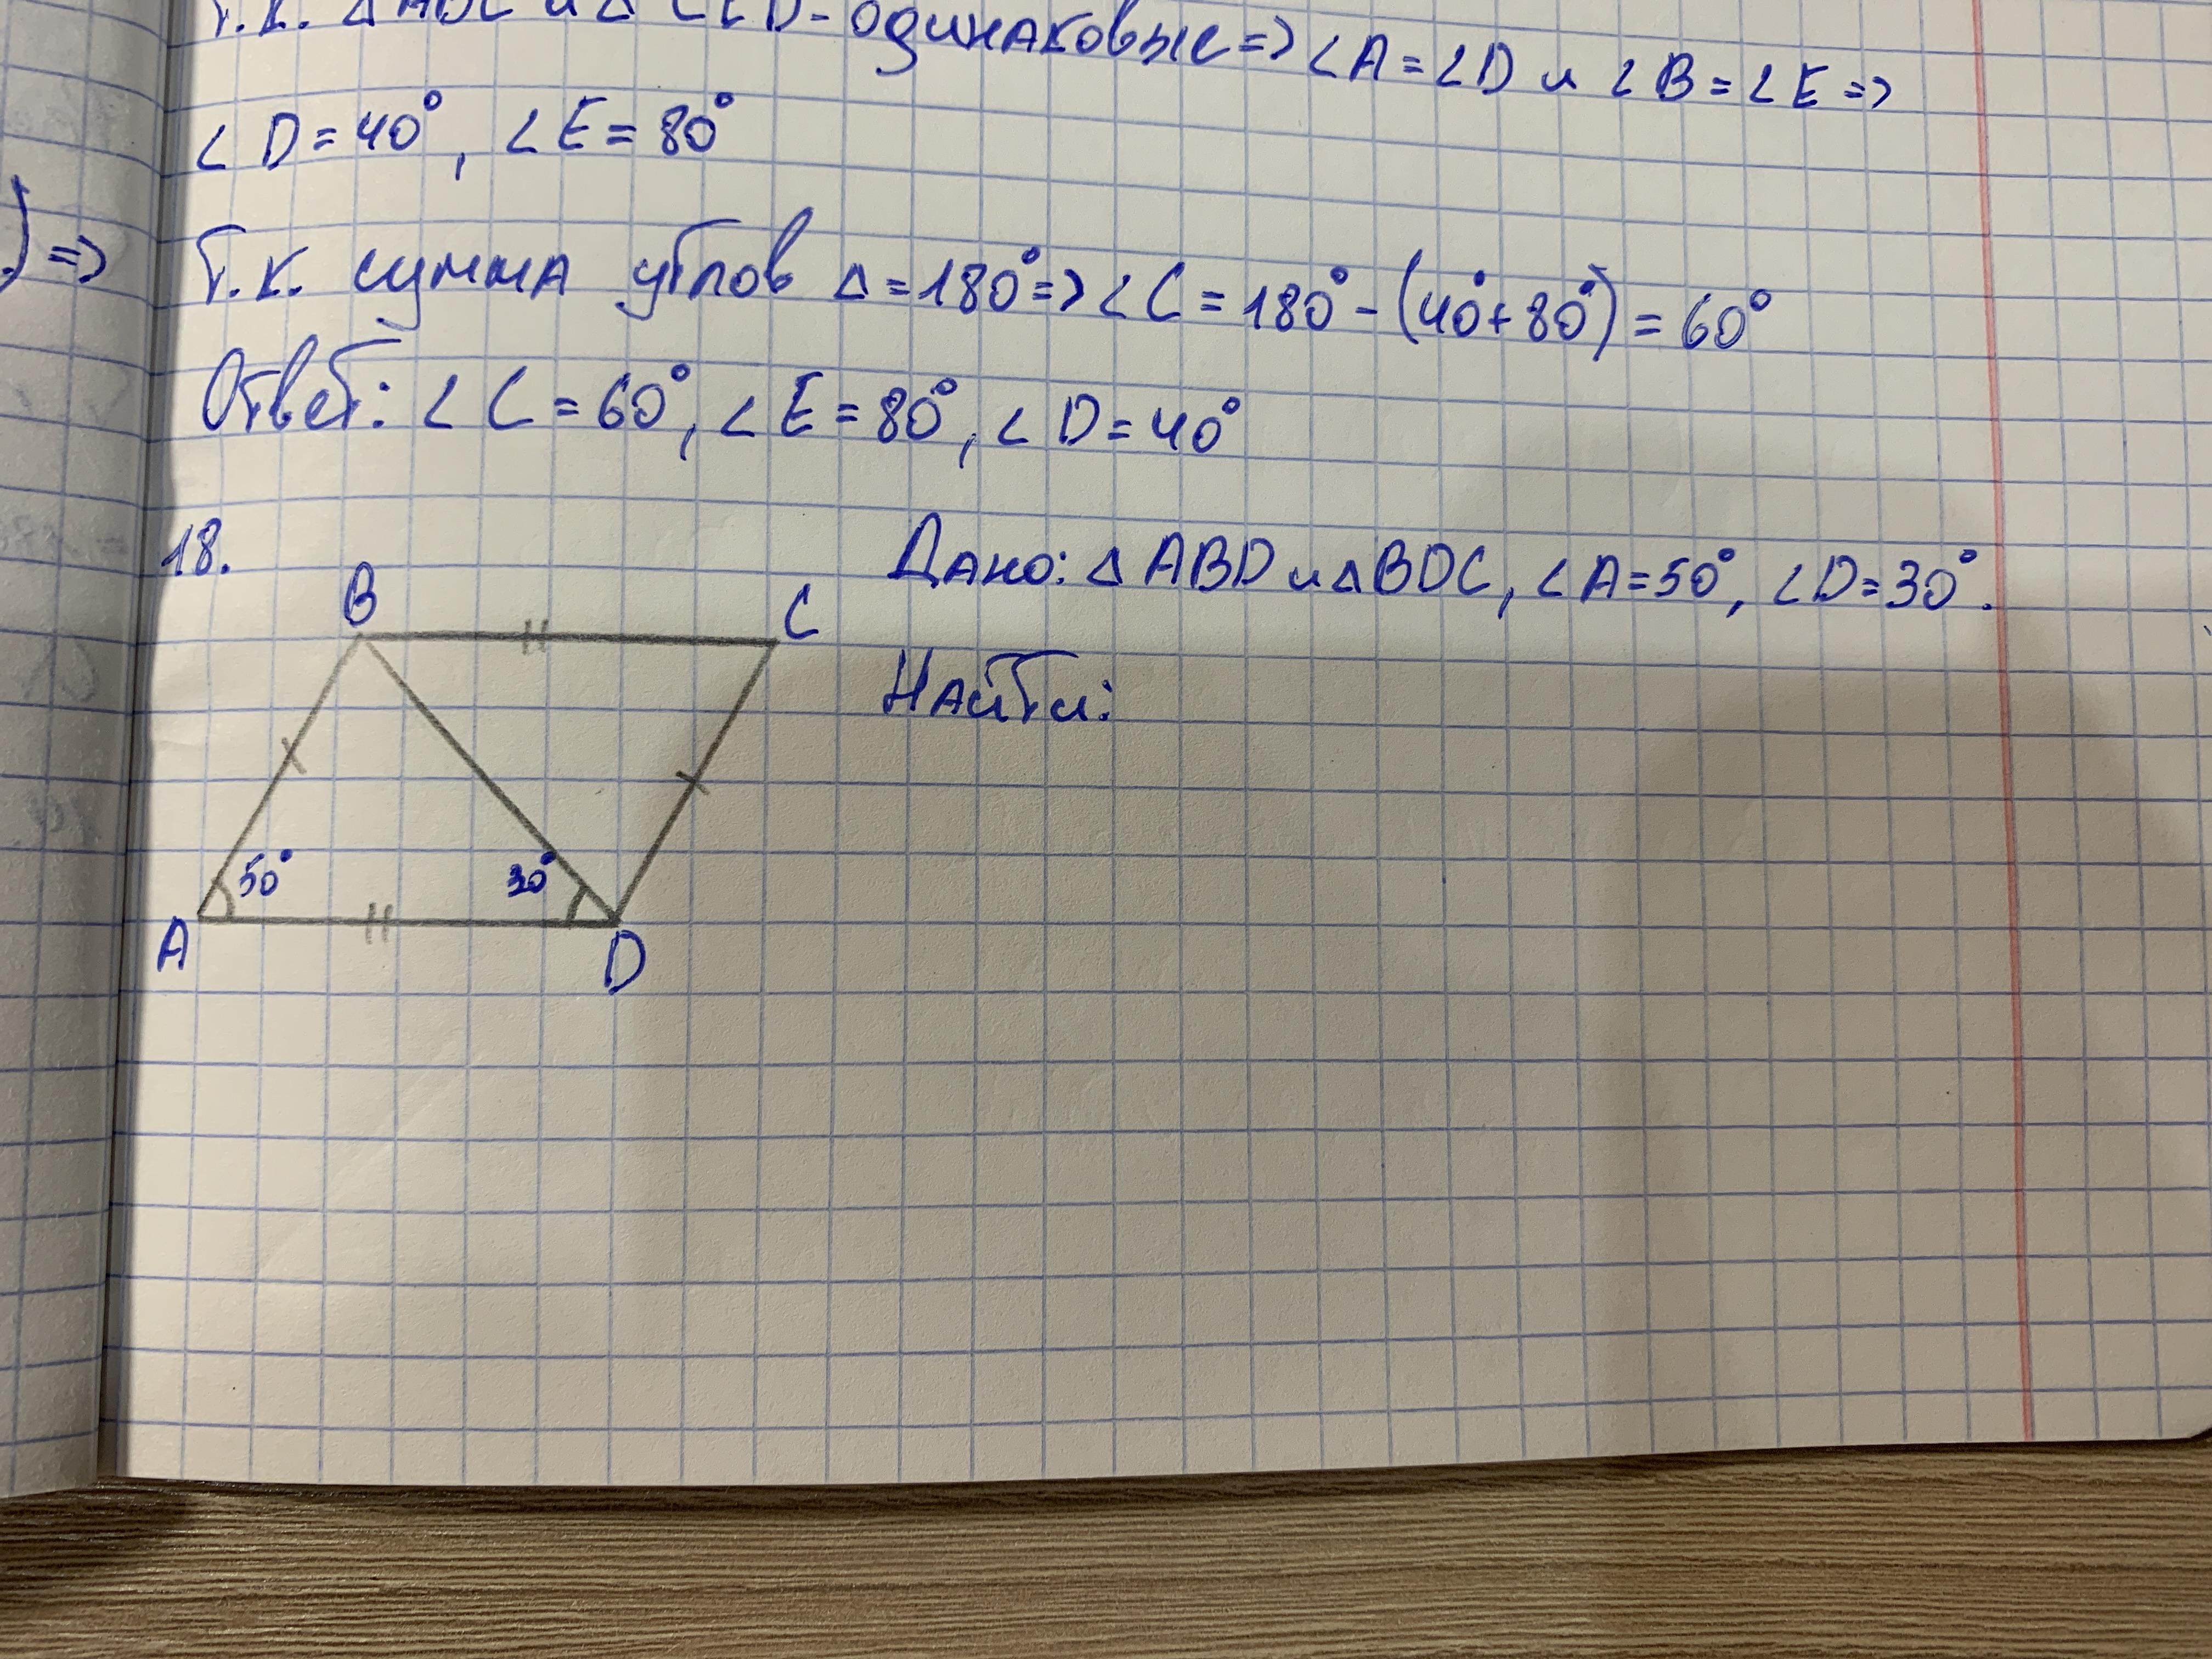 Т.к. △ABC и △CED - одинаковые => ∠A = ∠D и ∠B = ∠E =>
∠D = 40°, ∠E = 80°
) =>
Т.к. сумма углов △ = 180° => ∠C = 180° - (40° + 80°) = 60°
Ответ: ∠C = 60°, ∠E = 80°, ∠D = 40°
18.
Дано: △ABD и △BDC, ∠A = 50°, ∠D = 30°.
Найти:
B
C
50°
30°
A
D